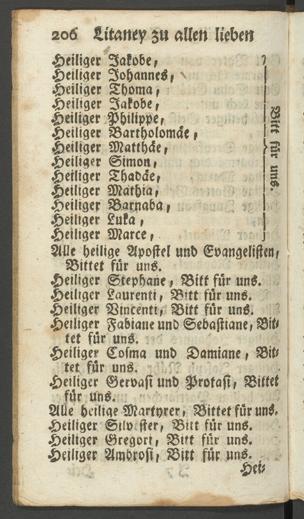 206 Litaney zu allen lieben
Heiliger Jakobe,
Heiliger Johannes,
Heiliger Thoma,
Heiliger Jakobe,
Heiliger Philippe,
Heiliger Bartholomäe,
Heiliger Matthäe,
Heiliger Simon,
Heiliger Thadäe,
Heiliger Mathia,
Heiliger Barnaba,
Heiliger Luka,
Heiliger Marce,
Bitt für uns.
Alle heilige Apostel und Evangelisten,
Bittet für uns.
Heiliger Stephane, Bitt für uns.
Heiliger Laurenti, Bitt für uns.
Heiliger Vincenti, Bitt für uns.
Heiliger Fabiane und Sebastiane, Bit-
tet für uns.
Heiliger Cosma und Damiane, Bit-
tet für uns.
Heiliger Gervasi und Protasi, Bittet
für uns.
Alle heilige Martyrer, Bittet für uns.
Heiliger Silvester, Bitt für uns.
Heiliger Gregori, Bitt für uns.
Heiliger Ambrosi, Bitt für uns.
Hei-